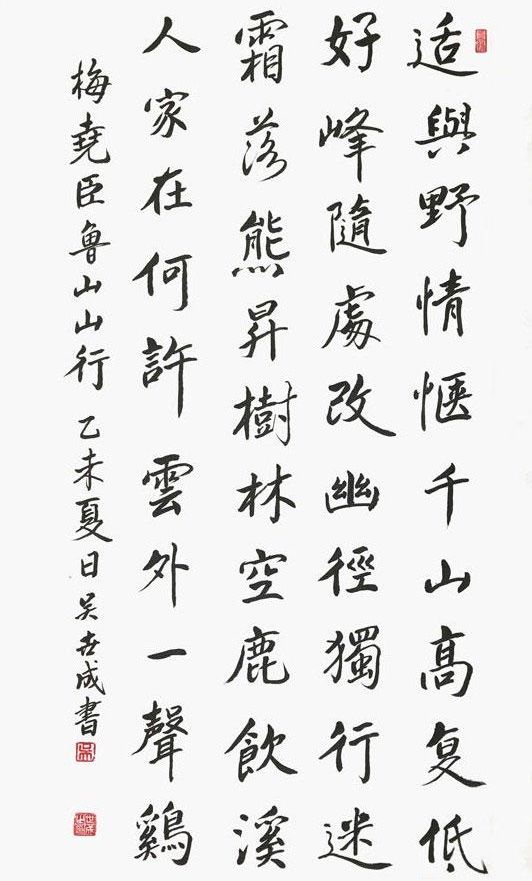 适與野情愜千山高复低
好峰隨處改幽徑獨行迷
霜落熊昇樹林空鹿飲溪
人家在何許雲外一聲鷄
梅堯臣魯山山行 乙未夏日吴世成書